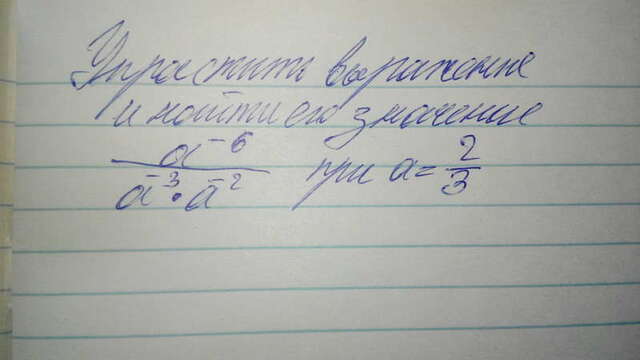 Упростить выражение
и найти его значение
a⁻⁶ / a⁻³ · a⁻² при a = 2/3